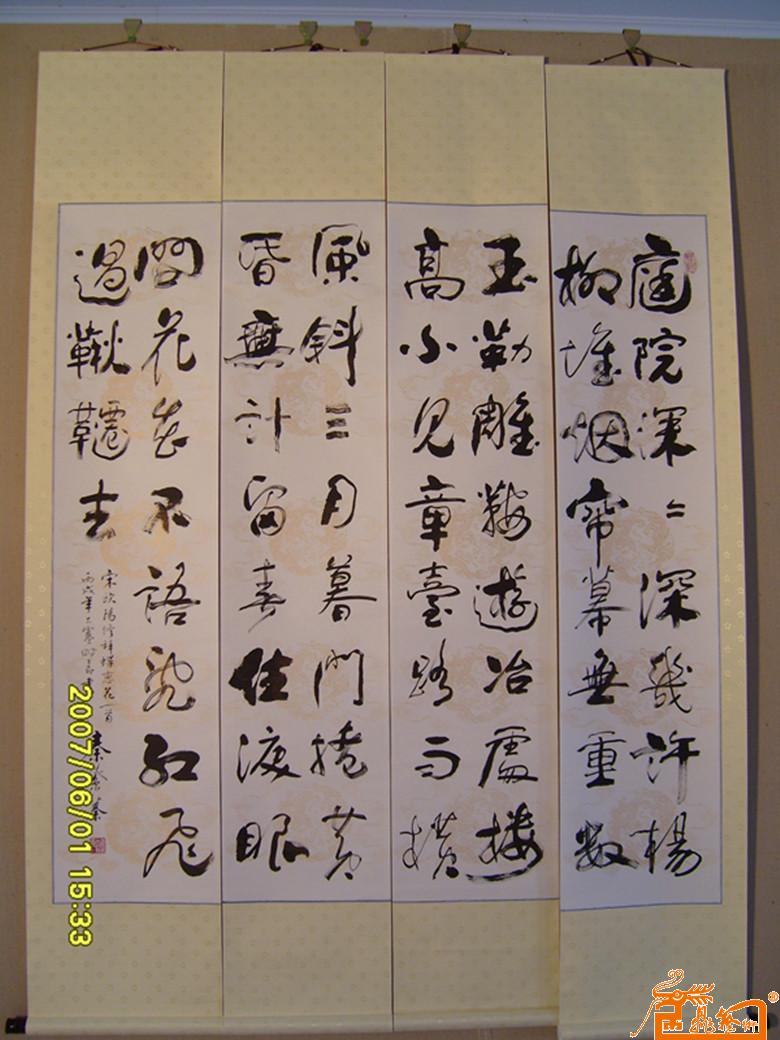 庭院深〻深幾許楊
柳堆烟帘幕無重數
玉勒雕鞍遊冶處樓
高不見章臺路雨橫
風斜三月暮門掩黃
昏無計留春住淚眼
問花花不語亂紅飛
過鞦韆去
宋欧陽修詞蝶恋花一首
丙戌年
2007/06/01 15:33